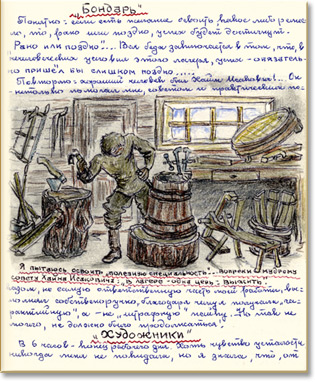 "Бондарь"
Понятно: если есть желание освоить какое либо ремес-
ло, то, рано или поздно, успех будет достигнут.
Рано или поздно?... Вся беда заключается в том, что, в
нечеловеческих условиях этого лагеря, успех - обязатель-
но пришёл бы слишком поздно.....
Повторяю: хороший человек был Хайм Исакович!... Он
не только помогал мне, советом и практическим по-
Я пытаюсь освоить „полезную специальность"... вопреки мудрому
совету Хайма Исаковича: „в лагере - одна цель: выжить.
казом, но самую ответственную часть моей работы, вы-
полнял собственноручно, благодаря чему я получала „га-
рантийную", а - не „штрафную" пайку. Но так не
могло, не должно было продолжаться.
"Художники"
В 6 часов - конец рабочего дня. Хоть чувство усталости
никогда меня не покидало, но я знала, что, от